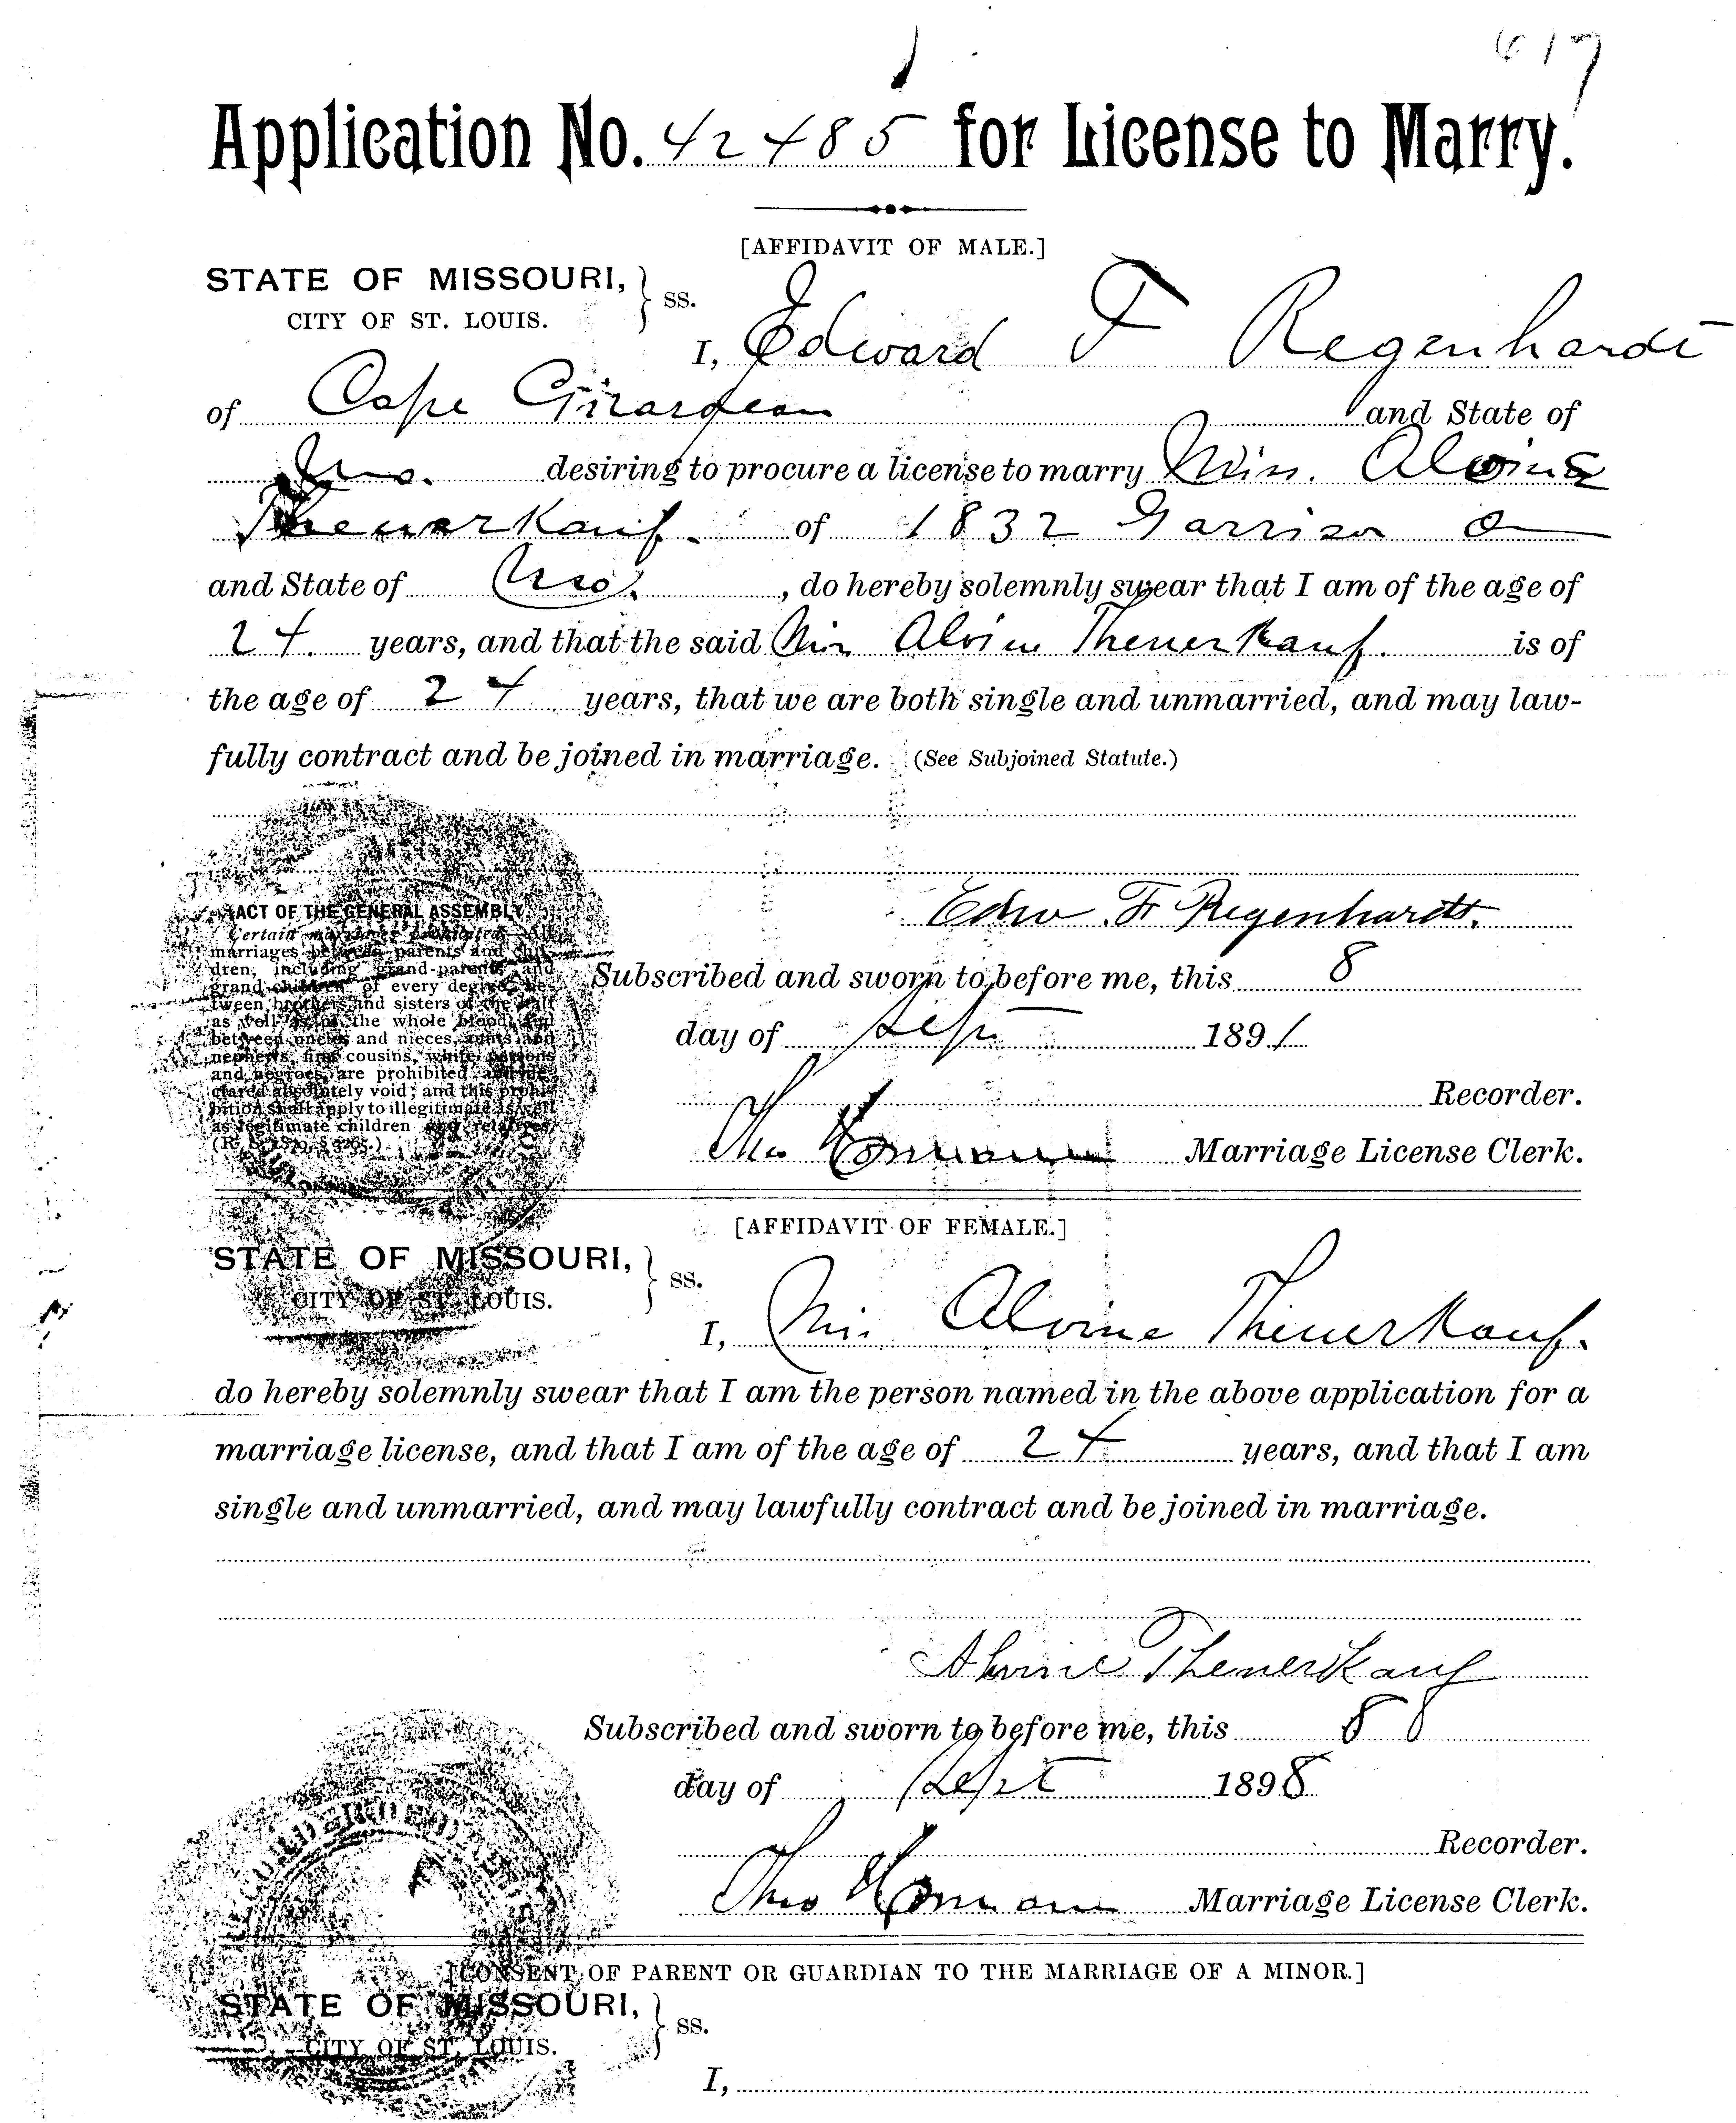 617
Application No. 42485 for License to Marry.
[AFFIDAVIT OF MALE.]
STATE OF MISSOURI, } ss.
CITY OF ST. LOUIS.
I, Edward F Regenhardt
of Cape Girardeau and State of
Mo. desiring to procure a license to marry Miss. Alvine
Theuerkauf. of 1832 Garrison
and State of Mo., do hereby solemnly swear that I am of the age of
24. years, and that the said Miss Alvine Theuerkauf. is of
the age of 24 years, that we are both single and unmarried, and may law-
fully contract and be joined in marriage. (See Subjoined Statute.)
Edw. F Regenhardt.
ACT OF THE GENERAL ASSEMBLY
Certain marriages prohibited.—All
marriages between parents and chil-
dren, including grand-parents and
grand-children of every degree, be-
tween brothers and sisters of the half
as well as of the whole blood, and
between uncles and nieces, aunts and
nephews, first cousins, white persons
and negroes, are prohibited and de-
clared absolutely void; and this prohi-
bition shall apply to illegitimate as well
as legitimate children and relatives.
Subscribed and sworn to before me, this 8
day of Sept 1891
Recorder.
Marriage License Clerk.
[AFFIDAVIT OF FEMALE.]
STATE OF MISSOURI, } ss.
CITY OF ST. LOUIS.
I, Miss Alvine Theuerkauf.
do hereby solemnly swear that I am the person named in the above application for a
marriage license, and that I am of the age of 24 years, and that I am
single and unmarried, and may lawfully contract and be joined in marriage.
Alvine Theuerkauf
Subscribed and sworn to before me, this 8
day of Sept 1898
Recorder.
Marriage License Clerk.
[CONSENT OF PARENT OR GUARDIAN TO THE MARRIAGE OF A MINOR.]
STATE OF MISSOURI, } ss.
CITY OF ST. LOUIS.
I,